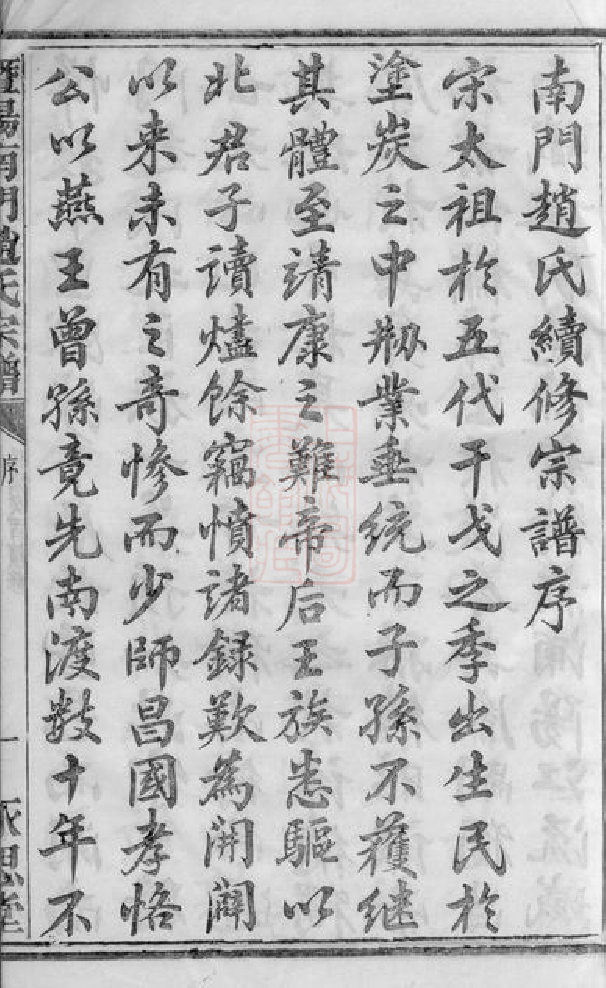 南門趙氏續修宗譜序
宋太祖於五代干戈之季出生民於
塗炭之中剏業垂統而子孫不獲繼
其體至靖康之難帝后王族悉驅以
北君子讀燼餘竊憤諸録歎為開闢
以来未有之奇惨而少師昌國孝恪
公以燕王曾孫竟先南渡數十年不
暨陽南門趙氏宗譜
序
一
永思堂